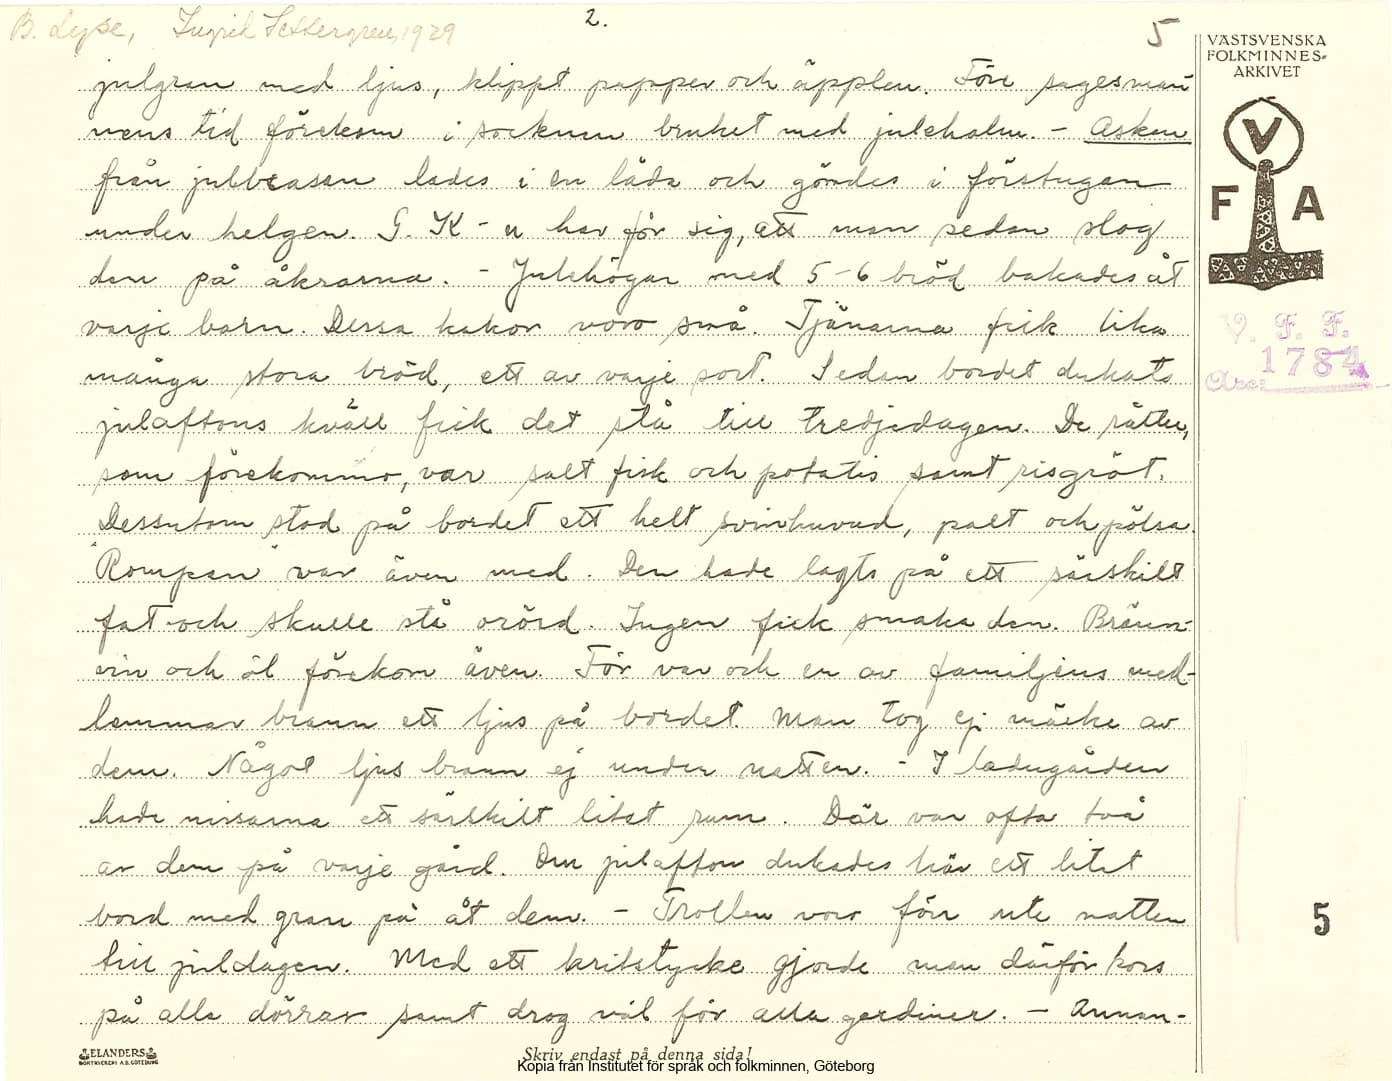 B. Lyse, Ingrid Settergren, 1929
2.
5
julgran med ljus, klippt papper och äpplen. Före sagesman-
nens tid förekom i socknen bruket med julehalm. - Askan
från julbrasan lades i en låda och gömdes i förstugan
under helgen. G. K-n har för sig, att man sedan slog
den på åkrarna. - Julehögar med 5-6 bröd bakades åt
varje barn. Dessa kakor voro små. Tjänarna fick lika
många stora bröd, ett av varje sort. Sedan bordet dukats
julaftons kväll fick det stå till tredjedagen. De rätter,
som förekommo, var salt fisk och potatis samt risgröt.
Dessutom stod på bordet ett helt svinhuvud, palt och pölsa.
"Rompan" var även med. Den hade lagts på ett särskilt
fat och skulle stå orörd. Ingen fick smaka den. Bränn-
vin och öl förekom även. För var och en av familjens med-
lemmar brann ett ljus på bordet. Man tog ej märke av
dem. Något ljus brann ej under natten. - I ladugården
hade nissarna ett särskilt litet rum. Där var ofta två
av dem på varje gård. Om julafton dukades här ett litet
bord med gran på åt dem. - Trollen voro förr ute natten
till juldagen. Med ett kritstycke gjorde man därför kors
på alla dörrar samt drog väl för alla gardiner. - Annan-
VÄSTSVENSKA
FOLKMINNES-
ARKIVET
V
F A
V. F. F.
1784
Acc:
5
ELANDERS
BOKTRYCKERI A.B. GÖTEBORG
Skriv endast på denna sida!
Kopia från Institutet för språk och folkminnen, Göteborg